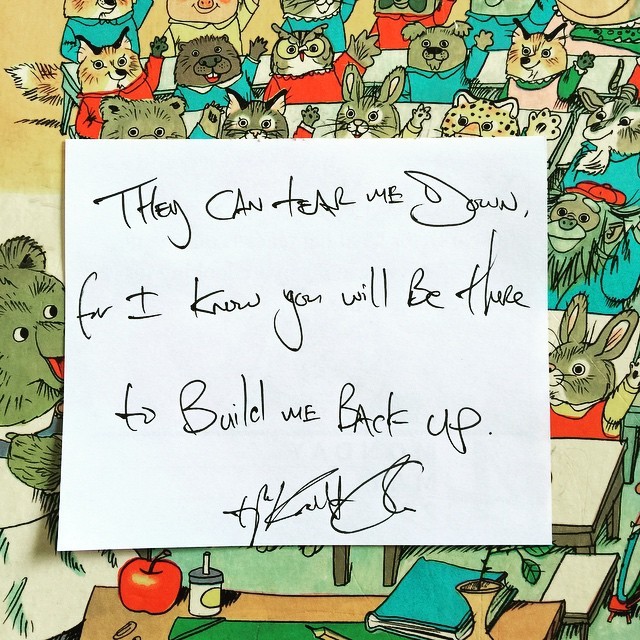 They can tear me Down,
for I know you will Be there
to Build me Back up.